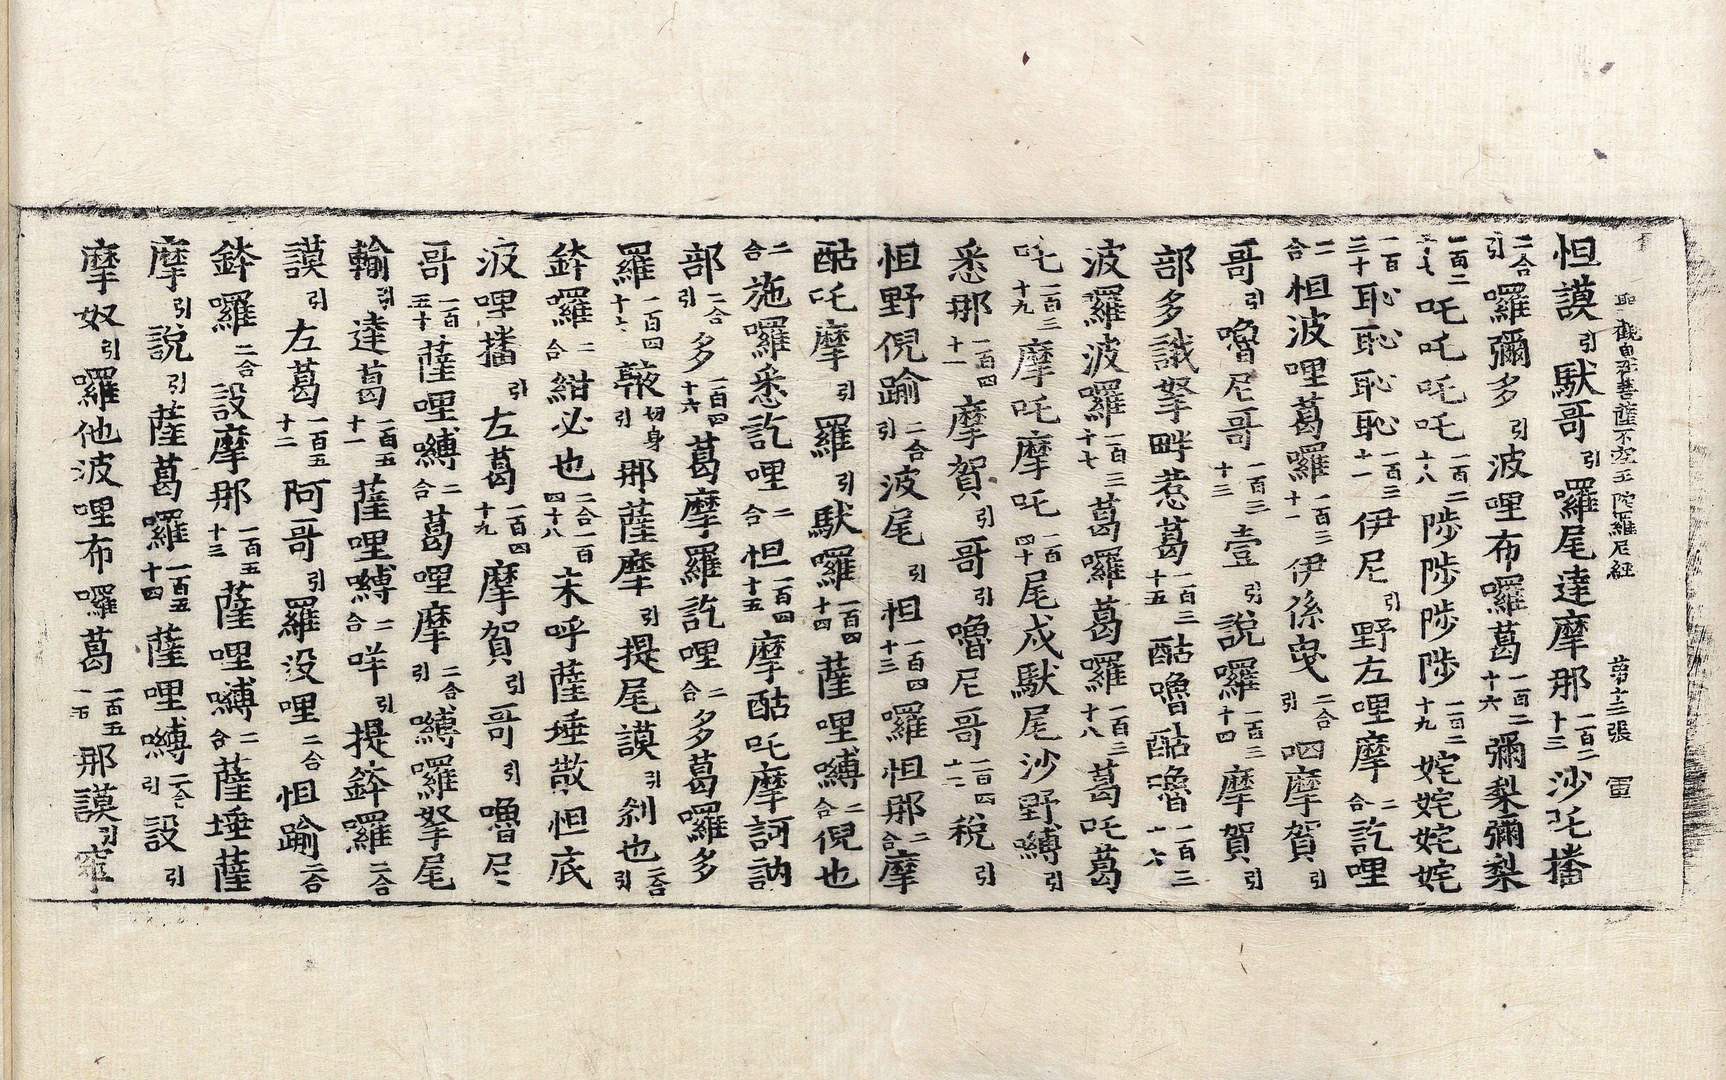 聖觀自在菩薩不空王陀羅尼經 第十三張 雷
怛謨引馱哥引囉尾達摩那一百二十三沙吒播
二合引囉彌多引波哩布囉葛一百二十六彌梨彌梨
一百二十七吒吒吒吒一百二十八陟陟陟陟一百二十九姹姹姹姹
一百三十恥恥恥恥一百三十一伊尼引野左哩摩二合訖哩
二合怛波哩葛囉一百三十二伊係曳二合引呬摩賀引
哥引嚕尼哥一百三十三壹引說囉一百三十四摩賀引
部多誐拏畔惹葛一百三十五酤嚕酤嚕一百三十六
波羅波囉一百三十七葛囉葛囉一百三十八葛吒葛
吒一百三十九摩吒摩吒一百四十尾戍馱尾沙野縛引
悉那一百四十一摩賀引哥引嚕尼哥一百四十二稅引
怛野倪踰二合引波尾引怛一百四十三囉怛那二合摩
酤吒摩引羅引馱囉一百四十四薩哩嚩二合倪也
二合施囉悉訖哩二合怛一百四十五摩酤吒摩訶訥
部二合引多一百四十六葛摩羅訖哩二合多葛囉多
羅一百四十六鞥切身引那薩摩引提尾謨引刹也二合引
鉢囉二合紺必也二合一百四十八末呼薩埵散怛底
波哩播引左葛一百四十九摩賀引哥引嚕尼
哥一百五十薩哩嚩二合葛哩摩二合引嚩囉拏尾
輸引達葛一百五十一薩哩嚩二合咩引提鉢囉二合
謨引左葛一百五十二阿哥引羅没哩二合怛踰二合
鉢囉二合設摩那一百五十三薩哩嚩二合薩埵薩
摩引說引薩葛囉一百五十四薩哩嚩二合引設引
摩奴引囉他波哩布囉葛一百五十五那謨引窣